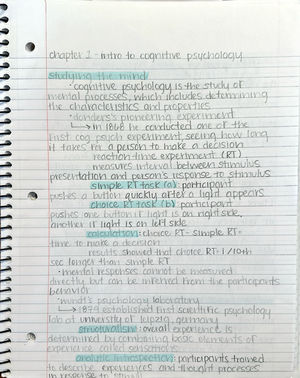 chapter 1 - intro to cognitive psychology
studying the mind
• cognitive psychology is the study of
mental processes, which includes determining
the characteristics and properties
• donders's pioneering experiment
↳ in 1868 he conducted one of the
first cog psych experiment, seeing how long
it takes for a person to make a decision
reaction-time experiment (RT)
measures interval between stimulus
presentation and person's response to stimulus
simple RT task (a): participant
pushes a button quickly after a light appears
choice RT task (b): participant
pushes one button if light is on right side,
another if light is on left side
calculation: choice RT- simple RT=
time to make a decision
results showed that choice RT= 1/10th
sec longer than simple RT
• mental responses cannot be measured
directly but can be inferred from the participants
behavior
• wundt's psychology laboratory
↳ 1879 established first scientific psychology
lab at university of leipzig, germany
structuralism: overall experience is
determined by combining basic elements of
experience called sensations
analytic introspection: participants trained
to describe experiences and thought processes
in response to stimuli